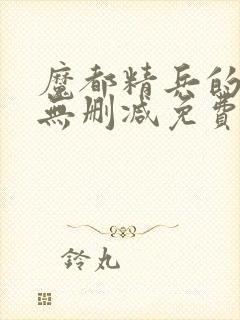 魔都精兵的
無删減免費
鈴丸